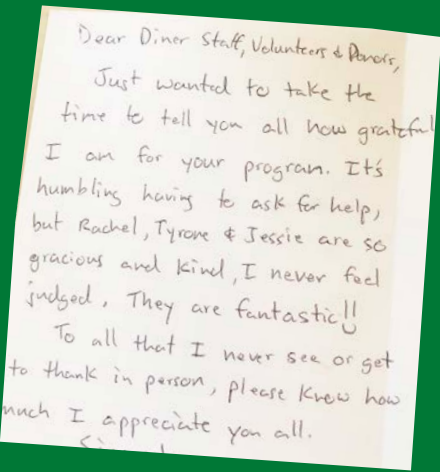 Dear Diner Staff, Volunteers & Donors,
Just wanted to take the
time to tell you all how grateful
I am for your program. It's
humbling having to ask for help,
but Rachel, Tyrone & Jessie are so
gracious and kind, I never feel
judged. They are fantastic!!
To all that I never see or get
to thank in person, please know how
much I appreciate you all.